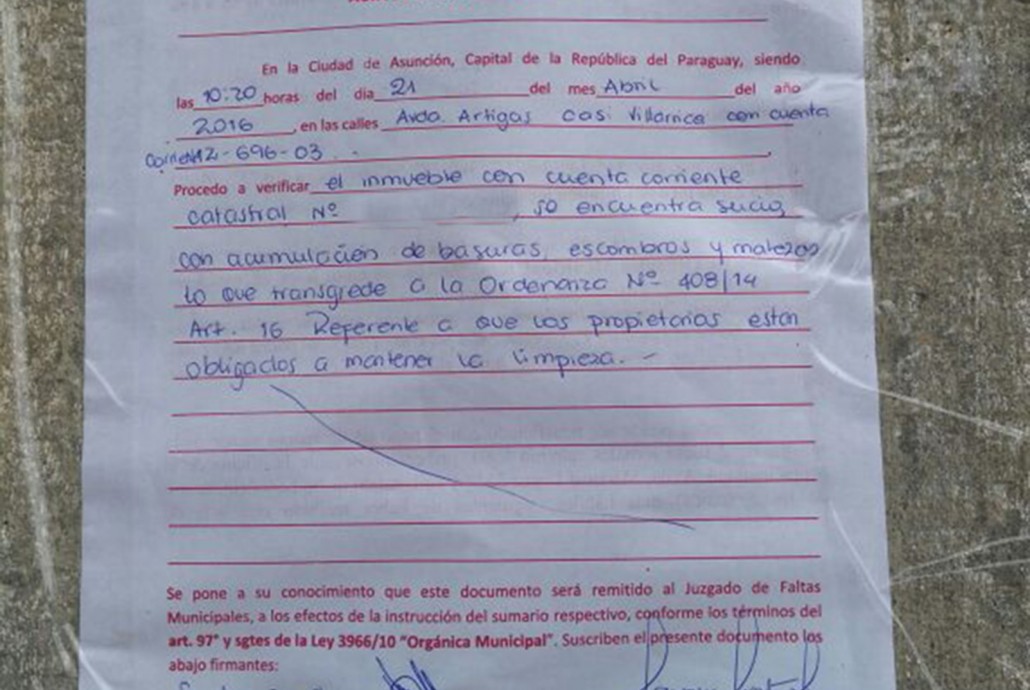 En la Ciudad de Asunción, Capital de la República del Paraguay, siendo
las 10:20 horas del día 21 del mes Abril del año
2016, en las calles Avda. Artigas casi Villarrica con cuenta
12-696-03
Procedo a verificar el inmueble con cuenta corriente
catastral Nº , se encuentra sucio,
con acumulación de basuras, escombros y malezas
lo que transgrede a la Ordenanza Nº 408/14
Art. 16 Referente a que los propietarios estan
obligados a mantener la limpieza. -
Se pone a su conocimiento que este documento será remitido al Juzgado de Faltas
Municipales, a los efectos de la instrucción del sumario respectivo, conforme los términos del
art. 97° y sgtes de la Ley 3966/10 "Orgánica Municipal". Suscriben el presente documento los
abajo firmantes: